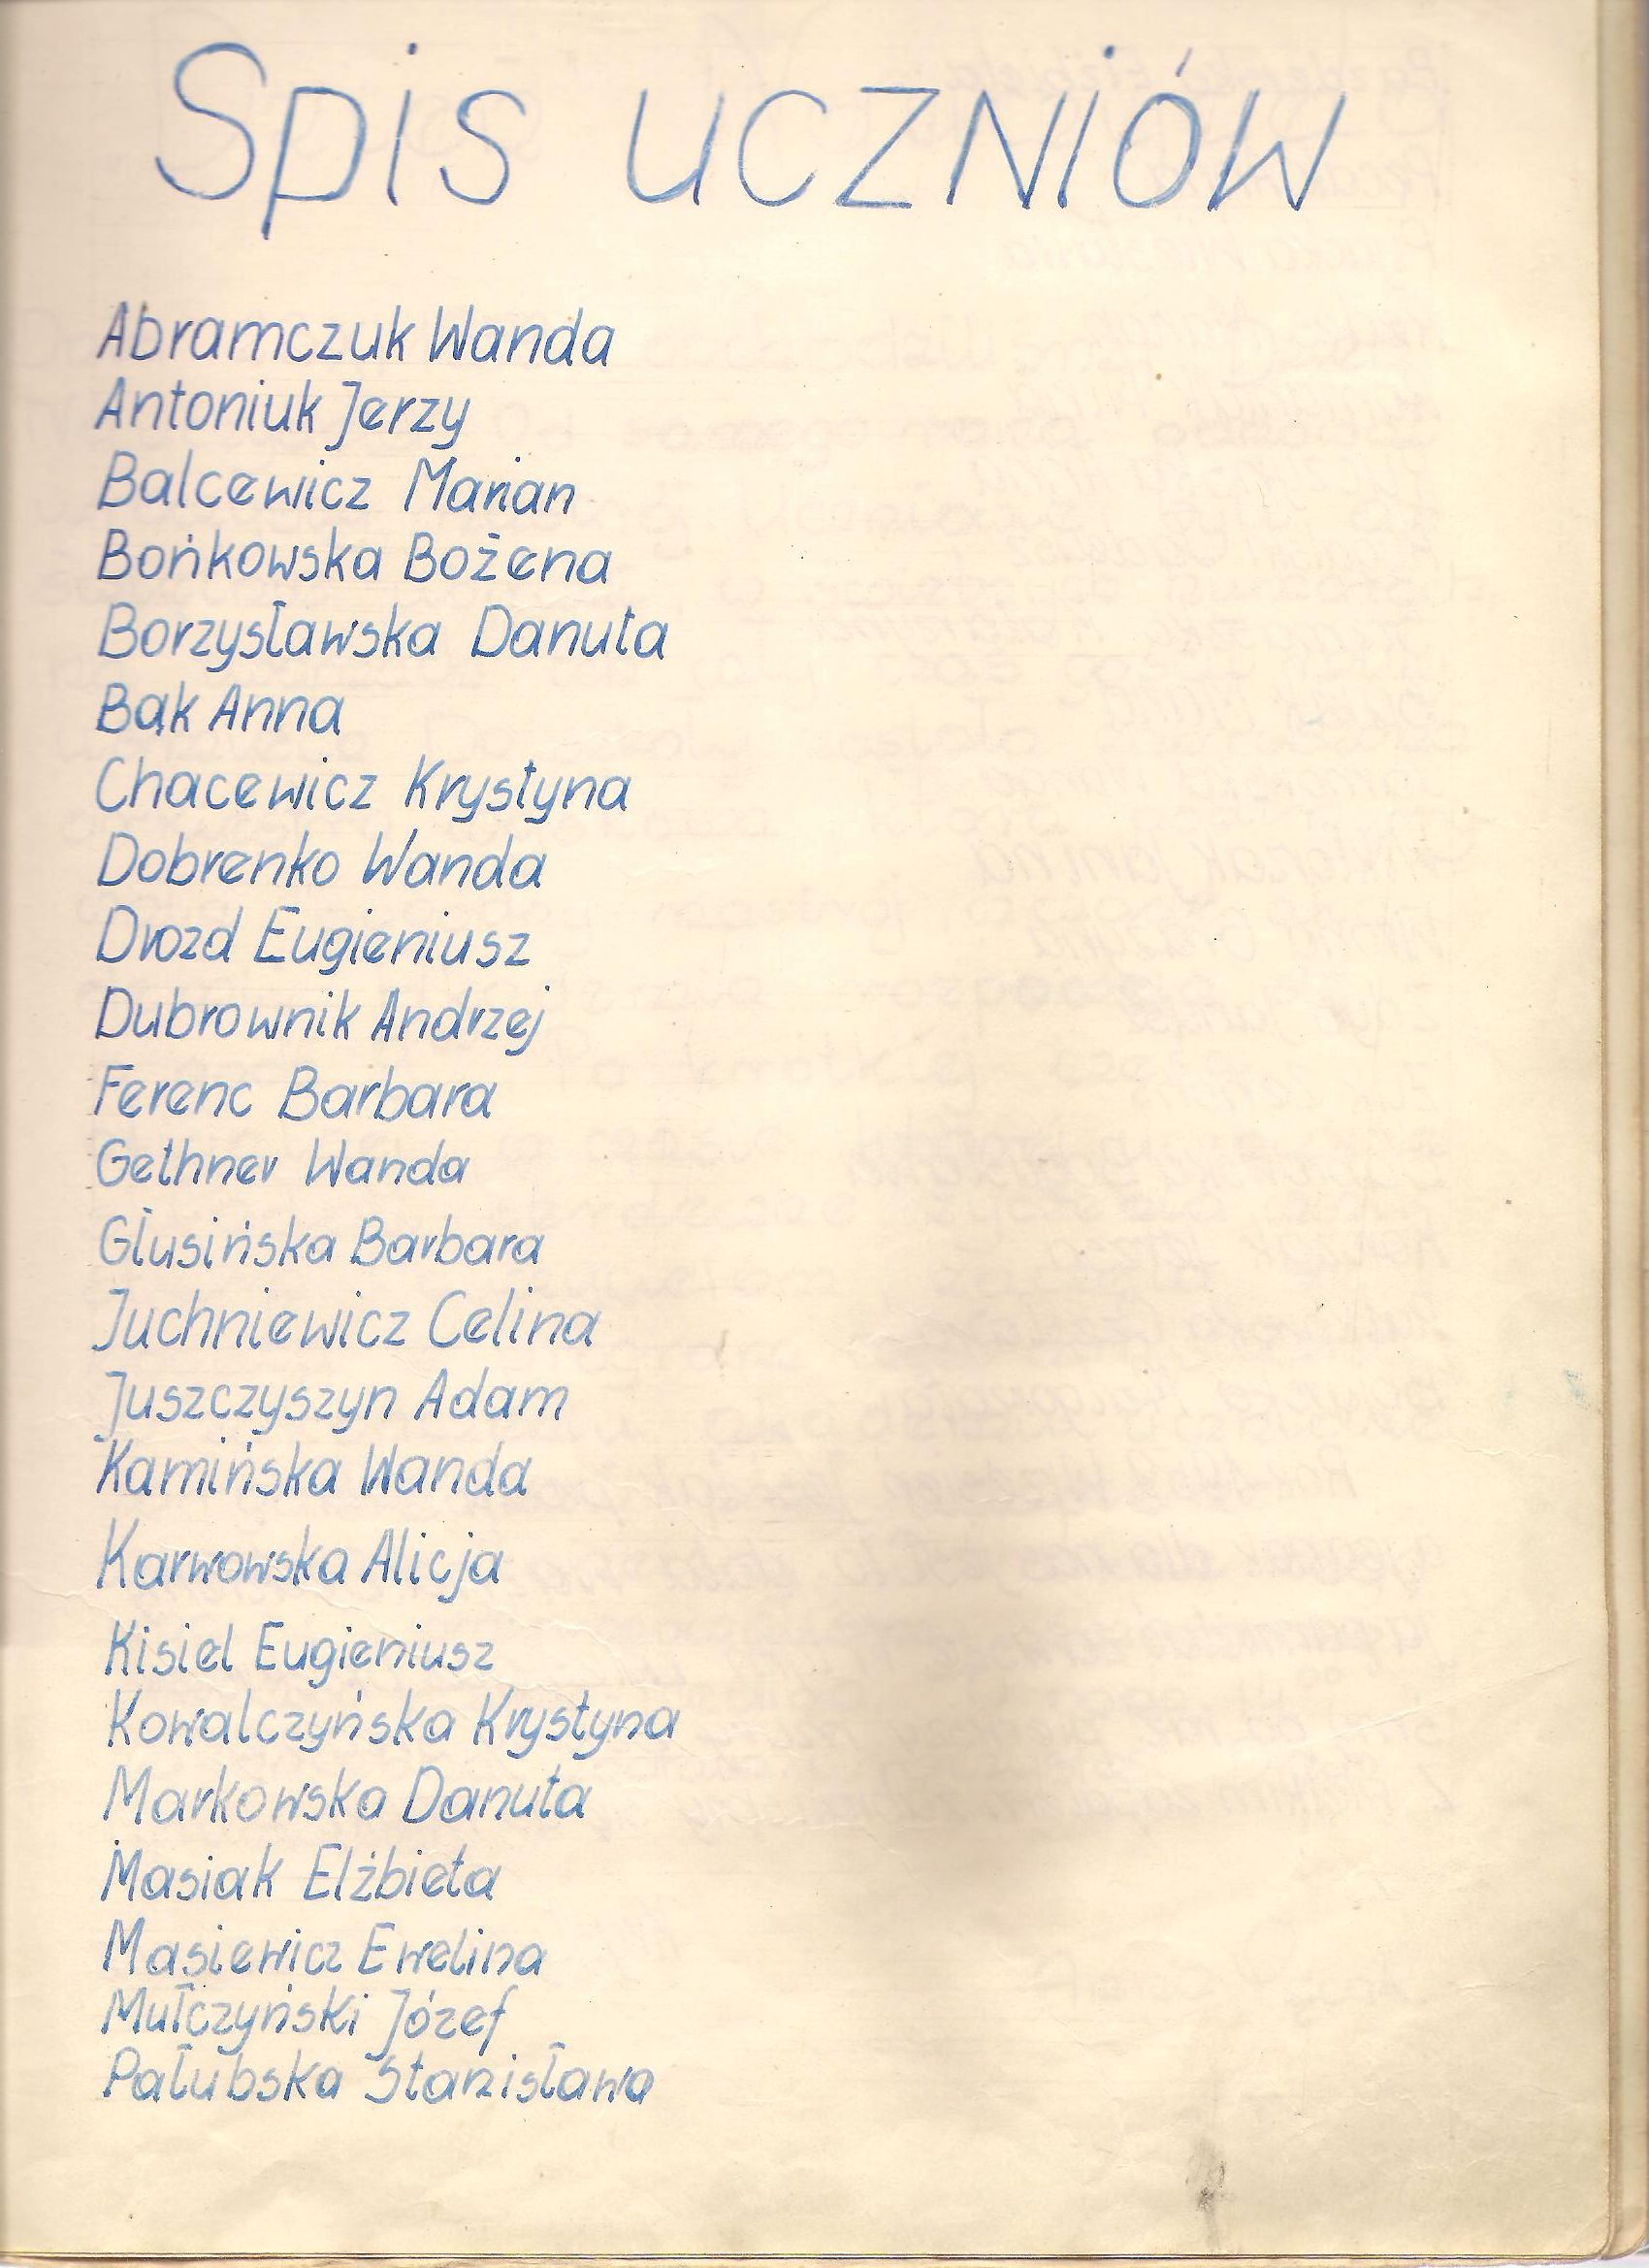 Spis uczniów
Abramczuk Wanda
Antoniuk Jerzy
Balcewicz Marian
Bońkowska Bożena
Borzysławska Danuta
Bąk Anna
Chacewicz Krystyna
Dobrenko Wanda
Drozd Eugieniusz
Dubrownik Andrzej
Ferenc Barbara
Gethner Wanda
Głusińska Barbara
Juchniewicz Celina
Juszczyszyn Adam
Kamińska Wanda
Karwowska Alicja
Kisiel Eugieniusz
Kowalczyńska Krystyna
Markowska Danuta
Masiak Elżbieta
Masiewicz Ewelina
Mułczyński Józef
Pałubska Stanisława